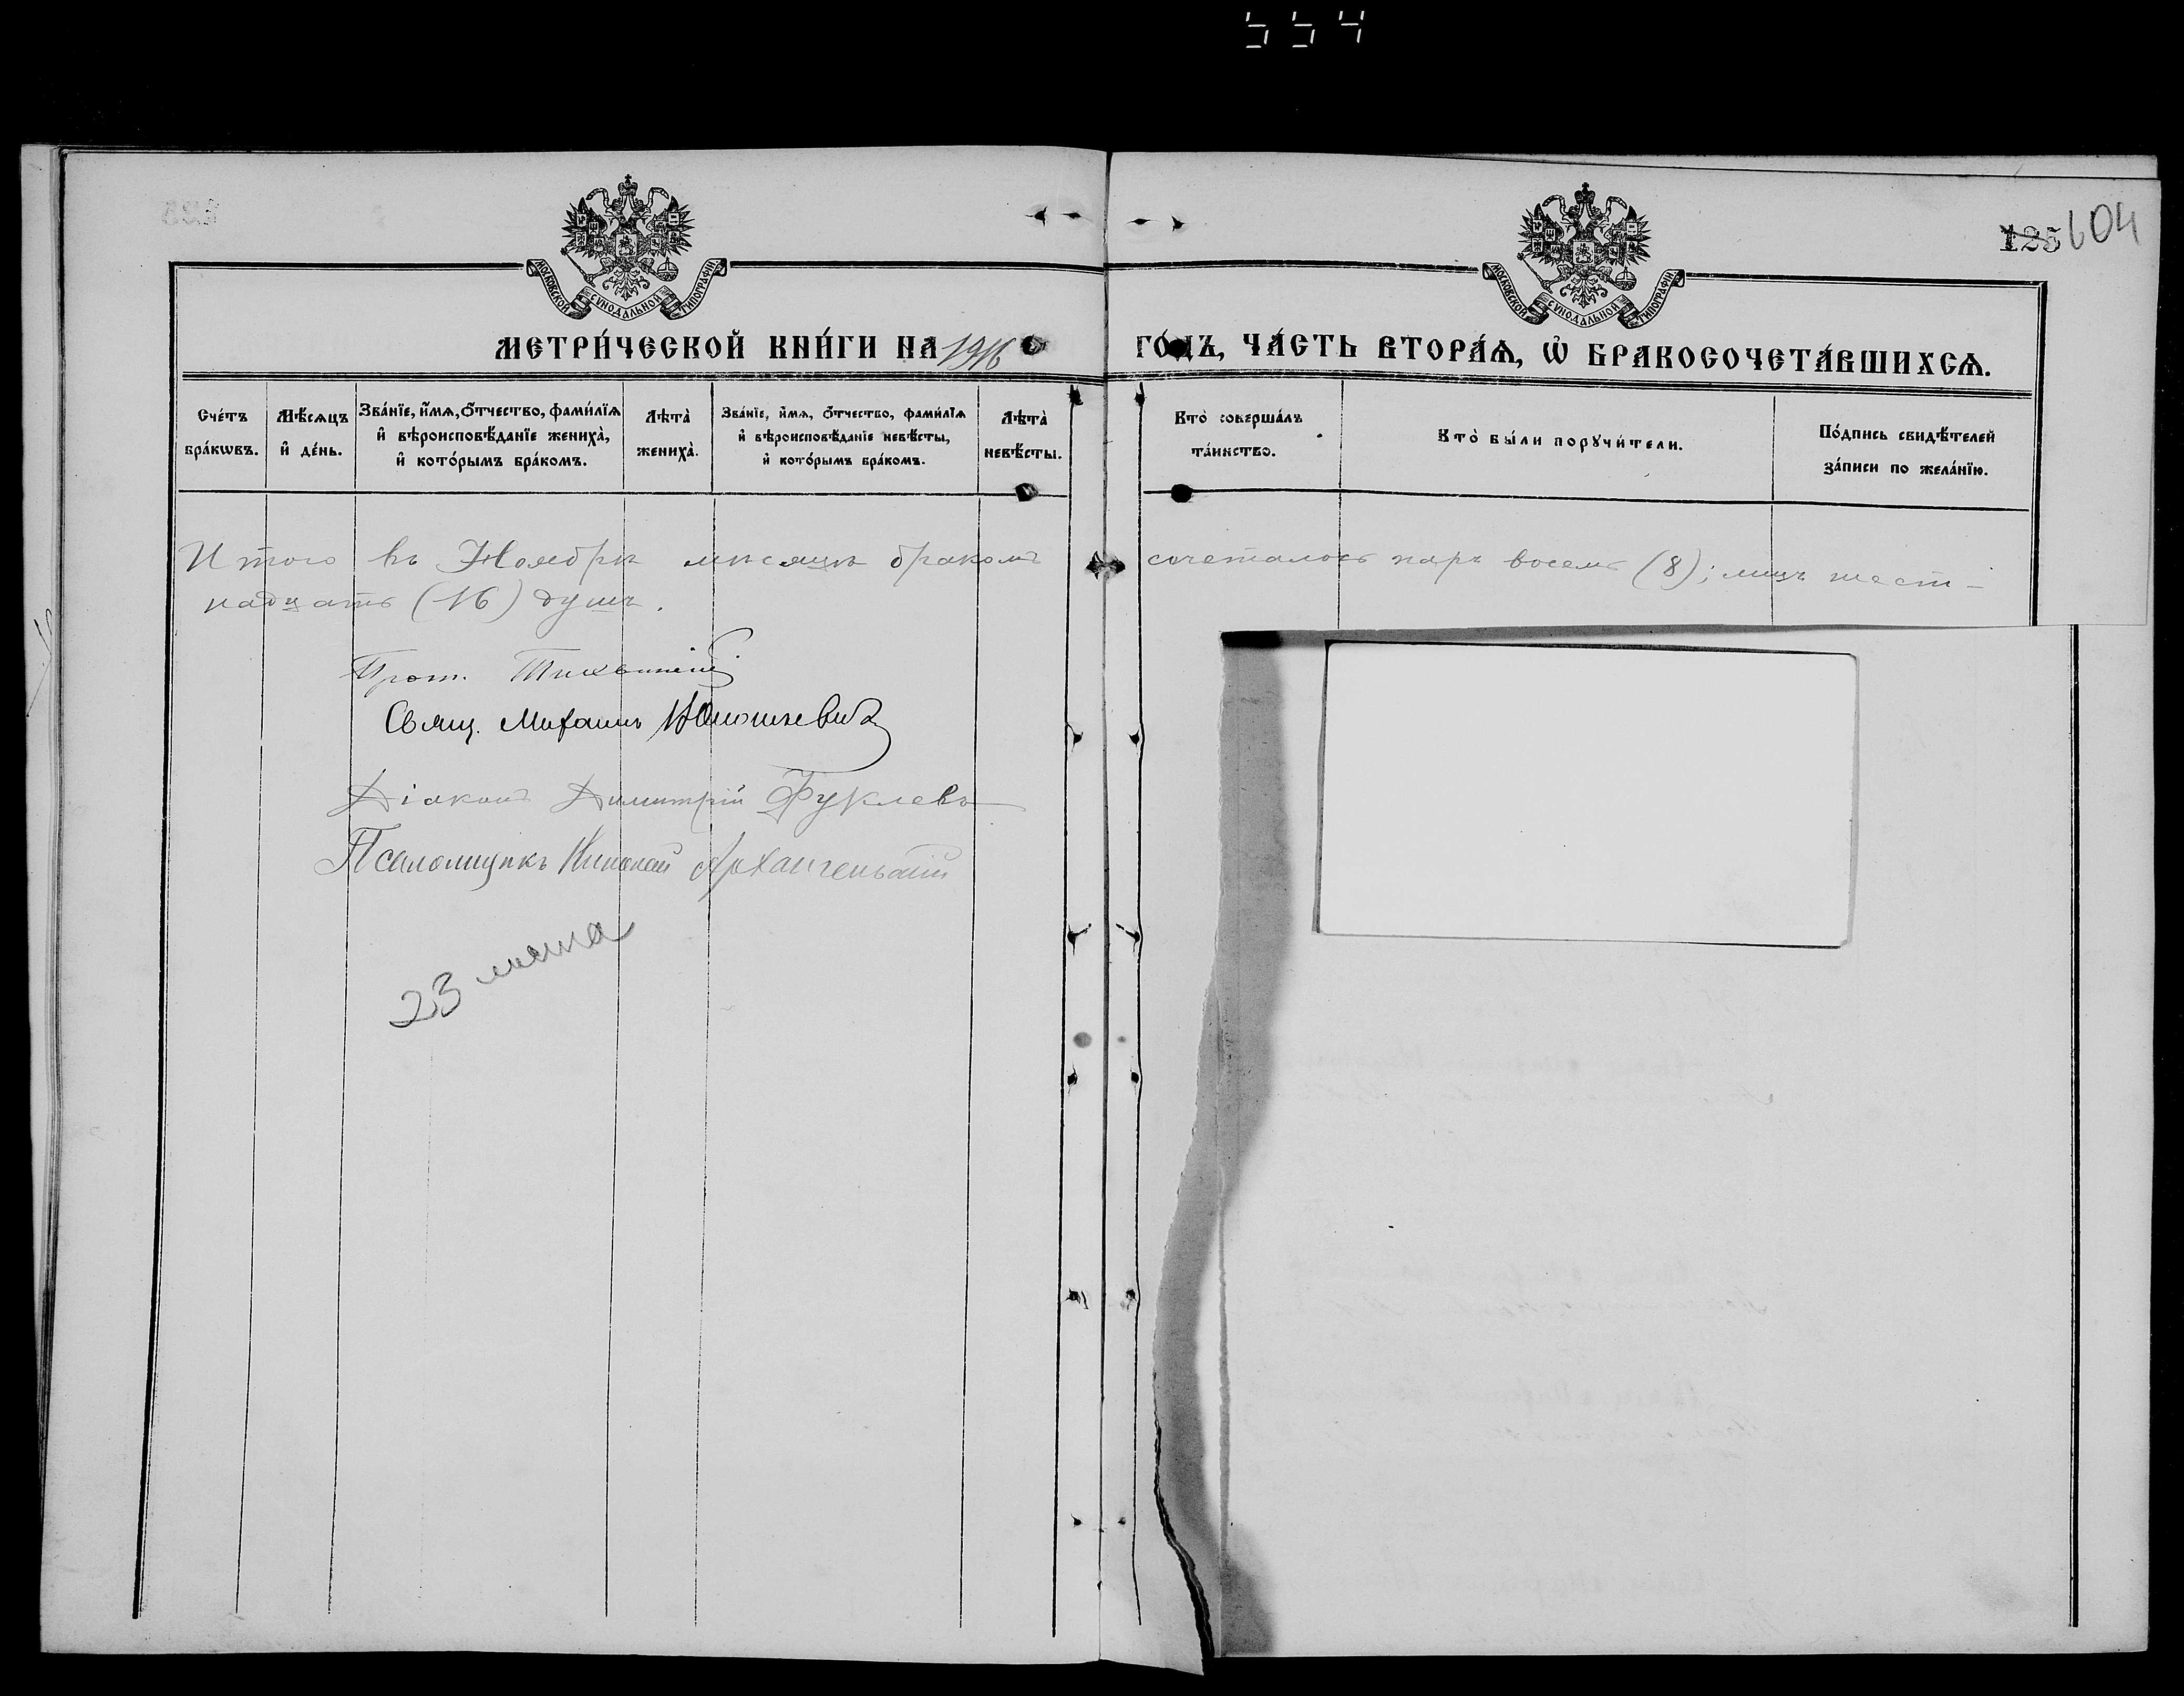 554
125 604
МОСКОВСКОЙ СѴНОДАЛЬНОЙ ТИПОГРАФІИ
МОСКОВСКОЙ СѴНОДАЛЬНОЙ ТИПОГРАФІИ
МЕТРИ́ЧЕСКОЙ КНИ́ГИ НА 1916 ГО́ДЪ, ЧА́СТЬ ВТОРА́Ѧ, Ѽ БРАКОСОЧЕТА́ВШИХСѦ.
Сче́тъ
бра́кѡвъ.
Мѣ́сѧцъ
и҆ де́нь.
Зва́нїе, и҆́мѧ, ѻ҆́тчество, фами́лїѧ
и҆ вѣроисповѣ́данїе жениха̀,
и҆ кото́рымъ бра́комъ.
Лѣта̀
жениха̀.
Зва́нїе, и҆́мѧ, ѻ҆́тчество, фами́лїѧ
и҆ вѣроисповѣ́данїе невѣ́сты,
и҆ кото́рымъ бра́комъ.
Лѣта̀
невѣ́сты.
Кто̀ соверша́лъ
та́инство.
Кто̀ бы́ли порꙋчи́тели.
По́дпись свидѣ́телей
за́писи по жела́нїю.
Итого въ Ноябрѣ мѣсяцѣ бракомъ сочеталось паръ восемь (8); лицъ шест-
надцать (16) душъ.
Прот. Тихвинскій
Свящ. Михаилъ
Діаконъ Димитрій Фуклевъ
Псаломщикъ Николай Архангельскій
23 листа